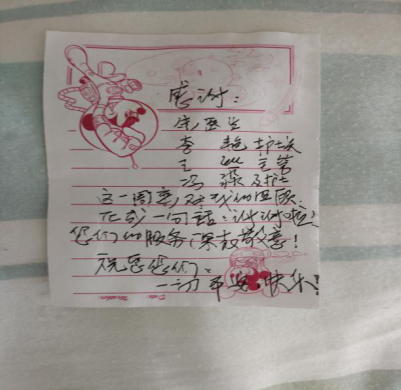 感谢：
宋医生
李 艳护士长
王 主管
冯 护士
这一周来，对我的照顾。
化成一句话：谢谢啦！
您们的服务，深表敬意！
祝愿您们：
一切平安、快乐！